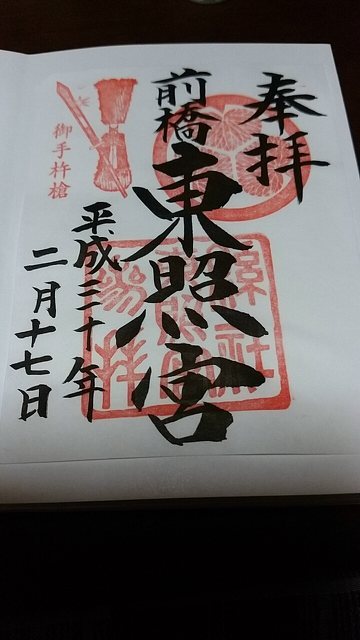 奉拝
前橋
東照宮
平成三十年
二月十七日
御手杵槍